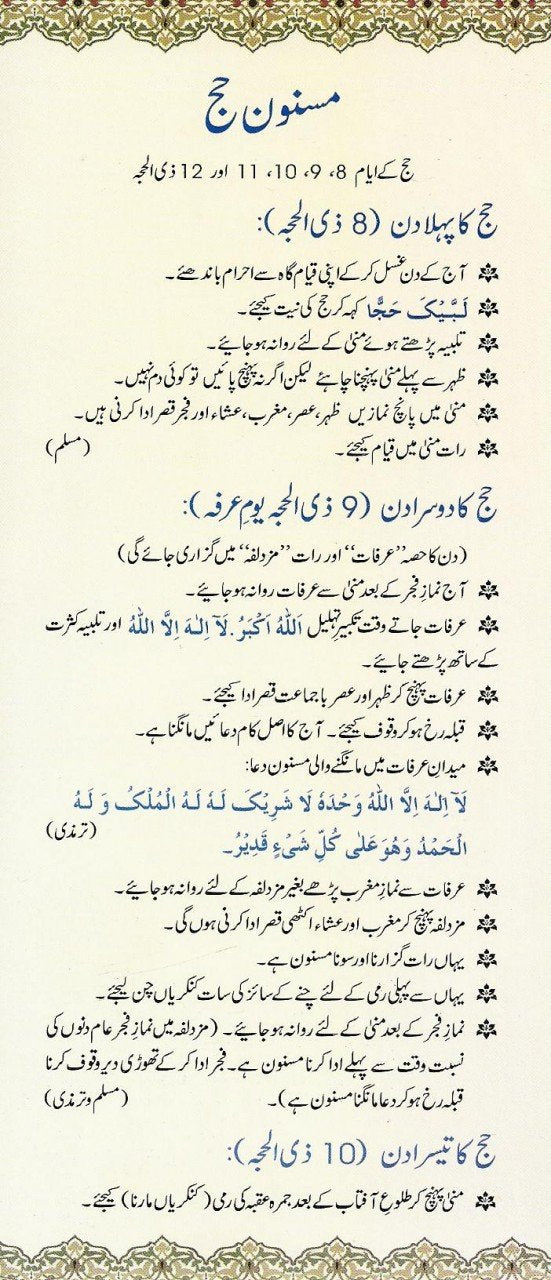 مسنون حج
حج کے ایام 8، 9، 10، 11 اور 12 ذی الحجہ
حج کا پہلا دن (8 ذی الحجہ):
آج کے دن غسل کر کے اپنی قیام گاہ سے احرام باندھئے۔
لَبَّیْکَ حَجًّا کہہ کر حج کی نیت کیجئے۔
تلبیہ پڑھتے ہوئے منیٰ کے لئے روانہ ہو جائیے۔
ظہر سے پہلے منیٰ پہنچنا چاہئے لیکن اگر نہ پہنچ پائیں تو کوئی دم نہیں۔
منیٰ میں پانچ نمازیں ظہر، عصر، مغرب، عشاء اور فجر قصر ادا کرنی ہیں۔
رات منیٰ میں قیام کیجئے۔ (مسلم)
حج کا دوسرا دن (9 ذی الحجہ یومِ عرفہ):
(دن کا حصہ ’’عرفات‘‘ اور رات ’’مزدلفہ‘‘ میں گزاری جائے گی)
آج نمازِ فجر کے بعد منیٰ سے عرفات روانہ ہو جائیے۔
عرفات جاتے وقت تکبیر تہلیل اَللهُ اَکْبَرُ. لَآ اِلٰـهَ اِلَّا اللهُ اور تلبیہ کثرت
کے ساتھ پڑھتے جائیے۔
عرفات پہنچ کر ظہر اور عصر باجماعت قصر ادا کیجئے۔
قبلہ رخ ہو کر وقوف کیجئے۔ آج کا اصل کام دعائیں مانگنا ہے۔
میدانِ عرفات میں مانگنے والی مسنون دعا:
لَآ اِلٰـهَ اِلَّا اللهُ وَحْدَهٗ لَا شَرِیْکَ لَـهٗ لَهُ الْمُلْکُ وَ لَـهُ
الْحَمْدُ وَهُوَ عَلٰی کُلِّ شَیْءٍ قَدِیْرٌ۔ (ترمذی)
عرفات سے نمازِ مغرب پڑھے بغیر مزدلفہ کے لئے روانہ ہو جائیے۔
مزدلفہ پہنچ کر مغرب اور عشاء اکٹھی قصر ادا کرنی ہوں گی۔
یہاں رات گزارنا اور سونا مسنون ہے۔
یہاں سے پہلی رمی کے لئے چنے کے سائز کی سات کنکریاں چن لیجئے۔
نمازِ فجر کے بعد منیٰ کے لئے روانہ ہو جائیے۔ (مزدلفہ میں نمازِ فجر عام دنوں کی
نسبت وقت سے پہلے ادا کرنا مسنون ہے۔ فجر ادا کر کے تھوڑی دیر وقوف کرنا
قبلہ رخ ہو کر دعا مانگنا مسنون ہے)۔ (مسلم و ترمذی)
حج کا تیسرا دن (10 ذی الحجہ):
منیٰ پہنچ کر طلوعِ آفتاب کے بعد جمرہ عقبہ کی رمی (کنکریاں مارنا) کیجئے۔